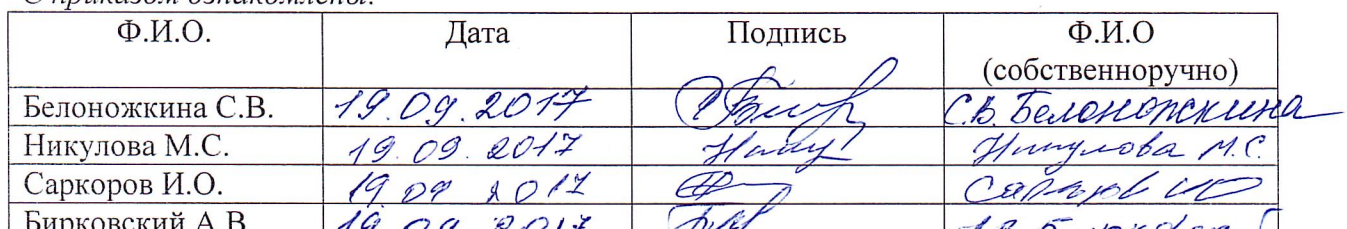 С приказом ознакомлены:
Ф.И.О. Дата Подпись Ф.И.О
(собственноручно)
Белоножкина С.В. 19.09.2017 С.В. Белоножкина
Никулова М.С. 19.09.2017 Никулова М.С.
Саркоров И.О. 19 09 2017
Бирковский А.В. 19.09.2017